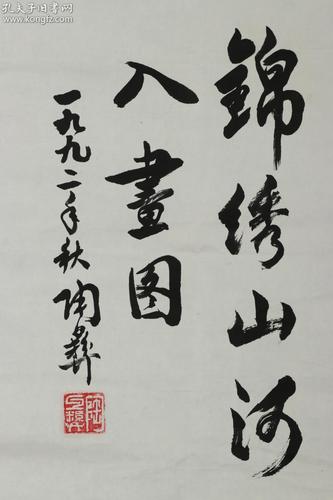 錦绣山河
入畫图
一九九二年秋
陶彝
孔夫子旧书网
www.kongfz.com